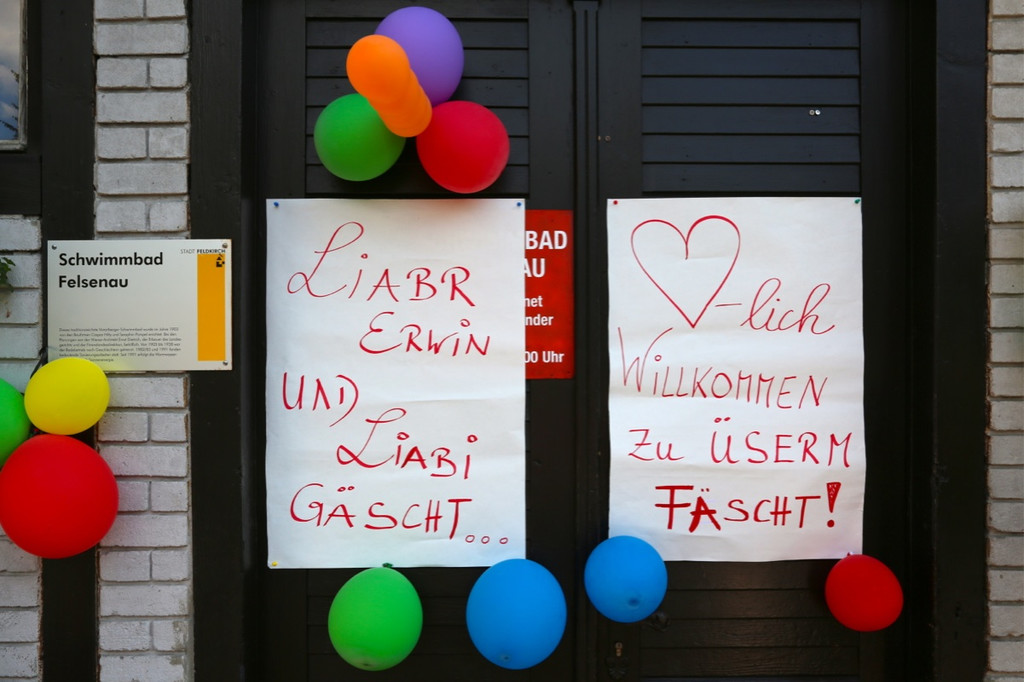 STADT FELDKIRCH
Schwimmbad
Felsenau
LIABR
ERWIN
UND
LIABI
GÄSCHT...
BAD
AU
net
nder
00 Uhr
-lich
WILLKOMMEN
ZU ÜSERM
FÄSCHT!